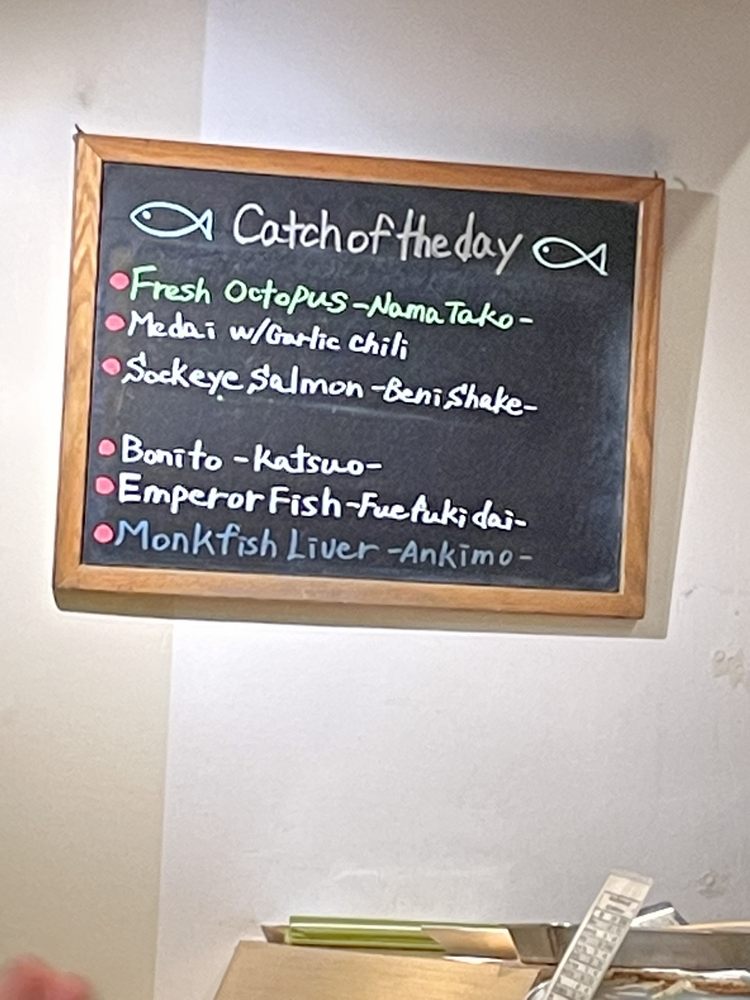 Catch of the day
Fresh Octopus -Nama Tako-
Medai w/Garlic chili
Sockeye Salmon -Beni Shake-
Bonito -Katsuo-
Emperor Fish -Fuefuki dai-
Monkfish Liver -Ankimo-